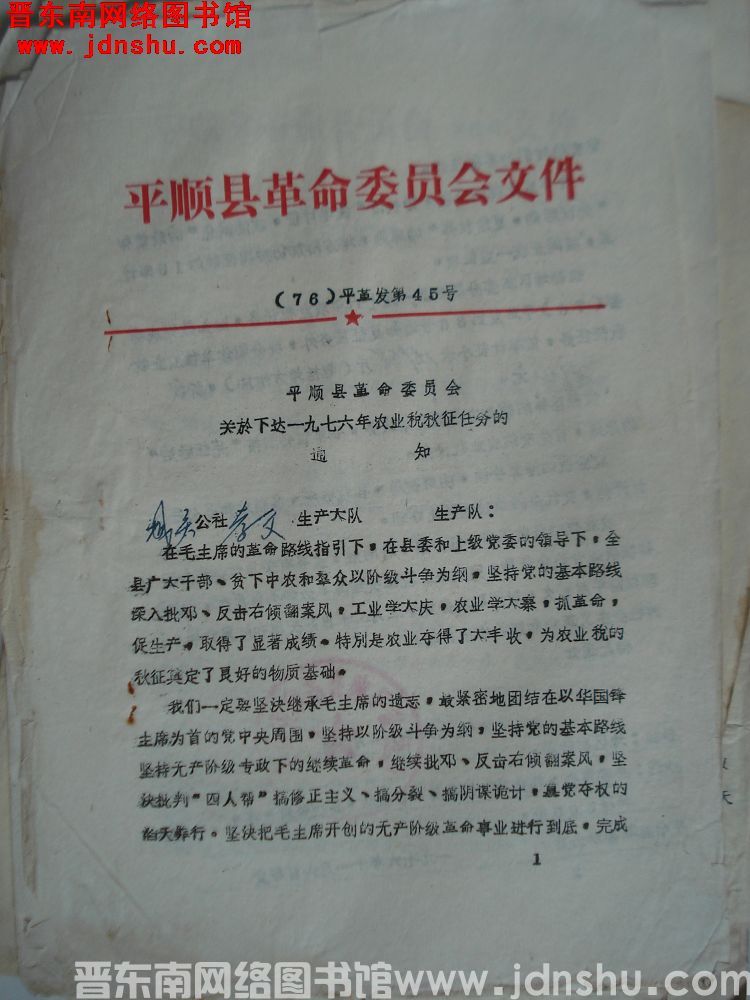 晋东南网络图书馆
www.jdnshu.com
平顺县革命委员会文件
(76)平革发第45号
平顺县革命委员会
关於下达一九七六年农业税秋征任务的
通 知
公社 生产大队 生产队:
在毛主席的革命路线指引下,在县委和上级党委的领导下,全
县广大干部、贫下中农和群众以阶级斗争为纲,坚持党的基本路线
深入批邓、反击右倾翻案风,工业学大庆,农业学大寨,抓革命,
促生产,取得了显著成绩。特别是农业夺得了大丰收,为农业税的
秋征奠定了良好的物质基础。
我们一定要坚决继承毛主席的遗志,最紧密地团结在以华国锋
主席为首的党中央周围,坚持以阶级斗争为纲,坚持党的基本路线
坚持无产阶级专政下的继续革命,继续批邓、反击右倾翻案风,坚
决批判“四人帮”搞修正主义、搞分裂、搞阴谋诡计,篡党夺权的
滔天罪行。坚决把毛主席开创的无产阶级革命事业进行到底,完成
1
晋东南网络图书馆www.jdnshu.com